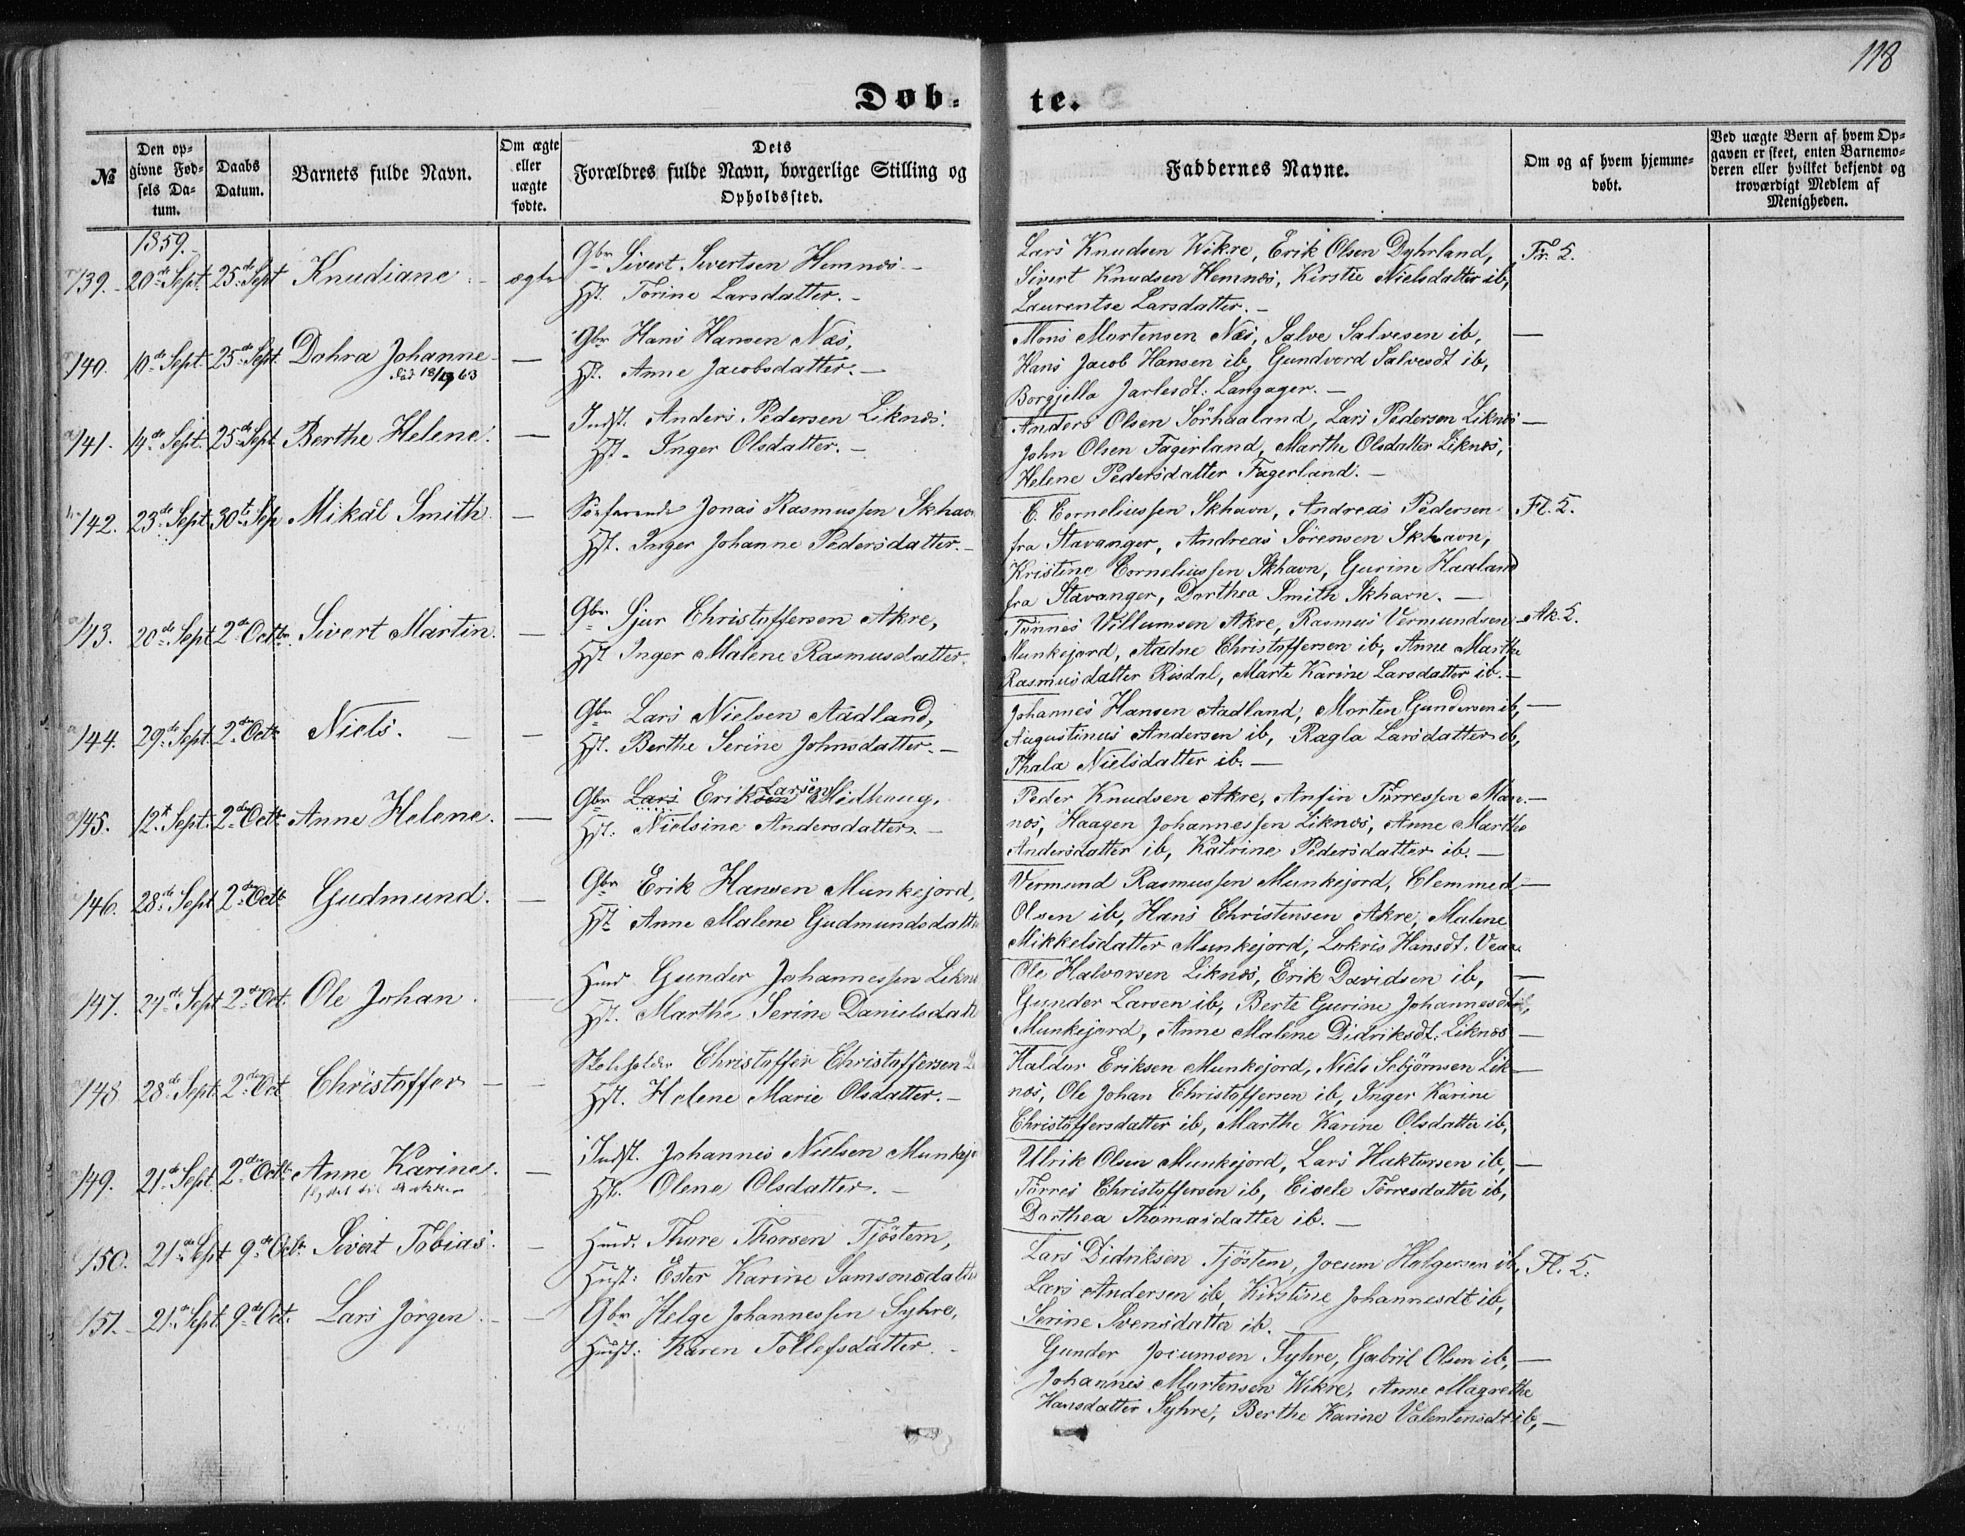 118
Døb- te.
№
Den op-
givne Fød-
sels Da-
tum.
Daabs
Datum.
Barnets fulde Navn.
Om ægte
eller
uægte
fødte.
Dets
Forældres fulde Navn, borgerlige Stilling og
Opholdssted.
Faddernes Navne.
Om og af hvem hjemme-
døbt.
Ved uægte Børn af hvem Op-
gaven er skeet, enten Barnemo-
deren eller hvilket bekjendt og
troværdigt Medlem af
Menigheden.
1859.
139. 20de Sept. 25de Sept Knudiane ægte
Gbr Sivert Sivertsen Hemnæs
Hst. Torine Larsdatter.
Lars Knudsen Wikre, Erik Olsen Dyhrland, Fr. S.
Sivert Knudsen Hemnæs, Kirstie Nielsdatter ib,
Laurentse Larsdatter.
140. 10de Sept. 25de Sept. Dohra Johanne —
død 18/19 63
Gbr Hans Hansen Næs,
Hst. Anne Jacobsdatter.
Mons Mortensen Næs, Salve Salvesen ib, —
Hans Jacob Hansen ib, Gundvord Salvesdt ib,
Borgjella Jarlesdt: Langager.
141. 14de Sept. 25de Sept. Berthe Helene. —
Indst. Anders Pedersen Liknæs.
Hst. Inger Olsdatter.
Anders Olsen Sörhaaland, Lars Pedersen Liknæs —
John Olsen Fagerland, Marthe Olsdatter Liknæs,
Helene Pedersdatter Fagerland.
142. 23de Sept. 30te Sep Mikal Smith. —
Söefarende Jonas Rasmussen Skhavn
Hst. Inger Johanne Pedersdatter.
C. Corneliussen Skhavn, Andreas Pedersen Fl. S.
fra Stavanger, Andreas Sörensen Skhavn,
Kristine Corneliussen Skhavn, Gurine Haaland
fra Stavanger, Dorthea Smith Skhavn.
143. 20de Sept 2de Octbr. Sivert Martin. —
Gbr. Sjur Christoffersen Akre,
Hst Inger Malene Rasmusdatter.
Tönnes Villumsen Akre, Rasmus Vermundsen Ak. S.
Munkejord, Aadne Christoffersen ib, Anne Marthe
Rasmusdatter Risdal, Marte Karine Larsdatter ib.
144. 29de Sept. 2de Octb Niels. —
Gbr Lars Nielsen Aadland,
Hst. Berthe Serine Johnsdatter.
Johannes Hansen Aadland, Morten Gundersen ib, —
Augustinus Andersen ib, Ragla Larsdatter ib,
Thala Nielsdatter ib.
145. 12te Sept. 2de Octb Anne Helene. —
Gbr Lars Eriksen Larsen Midhaug,
Hst. Nielsine Andersdatter.
Peder Knudsen Akre, Anfin Törressen Man- —
næs, Haagen Johannessen Liknæs, Anne Marthe
Andersdatter ib, Katrine Pedersdatter ib.
146. 28de Sept 2de Octb Gudmund. —
Gbr Erik Hansen Munkejord,
Hst Anne Malene Gudmundsdatter
Vermund Rasmussen Munkejord, Clemmed —
Olsen ib, Hans Christensen Akre, Malene
Mikkelsdatter Munkejord, Lokris Hansdt. Vea.
147. 24de Sept 2de Oct. Ole Johan. —
Hmd Gunder Johannessen Liknæs
Hst. Marthe Serine Danielsdatt
Ole Halvorsen Liknæs, Erik Davidsen ib, —
Gunder Larsen ib, Berte Gurine Johannesdt ib,
Munkejord, Anne Malene Didriksdt: Liknæs —
148 28de Sept. 2de Oct Christoffer —
Skoleholder Christoffer Christoffersen
Hst. Helene Marie Olsdatter.
Haldor Eriksen Munkejord, Niels Sebjörnsen Lik- —
næs, Ole Johan Christoffersen ib, Inger Karine
Christoffersdatter ib, Marthe Karine Olsdatter ib,
149. 21de Sept. 2de Octb. Anne Karine. —
Indst. Johannes Nielsen Munkejo
Hst. Olene Olsdatter.
Ulrik Olsen Munkejord, Lars Haktorsen ib, —
Törres Christoffersen ib, Eisele Törresdatter ib,
Dorthea Thomasdatter ib.
150. 21de Sept 9de Octb. Sivert Tobias. —
Hmd. Thore Thorsen Tjöstem,
Hust: Ester Karine Samsonsdatter
Lars Didriksen Tjöstem, Jocum Holgersen ib, Fl. S.
Lars Andersen ib, Kirstine Johannesdt ib,
Serine Svensdatter ib.
151. 21de Sept. 9de Oct. Lars Jörgen. —
Gbr Helge Johannessen Syhre,
Hust: Karen Tollefsdatter.
Gunder Jocumsen Syhre, Gabril Olsen ib, —
Johannes Mortensen Wikre, Anne Magrethe
Hansdatter Syhre, Berthe Karine Valentinsdt ib, —